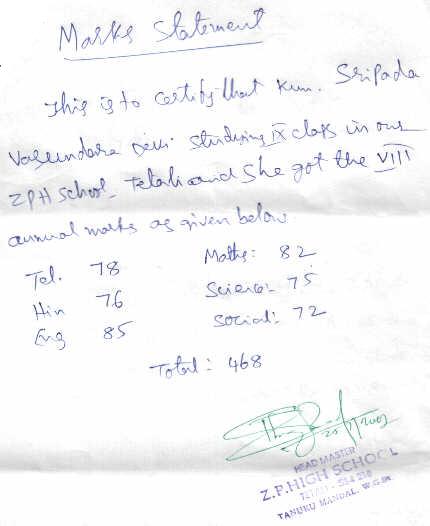 Marks Statement
This is to certify that Kum. Sripada
Vasundara Devi studying IX class in our
ZPH School, Tetali and She got the VIII
annual marks as given below
Tel. 78 Maths: 82
Hin 76 Science: 75
Eng 85 Social: 72
Total: 468
HEAD MASTER
Z.P.HIGH SCHOOL
TETALI - 534 218
TANUKU MANDAL, W.G.Dt.